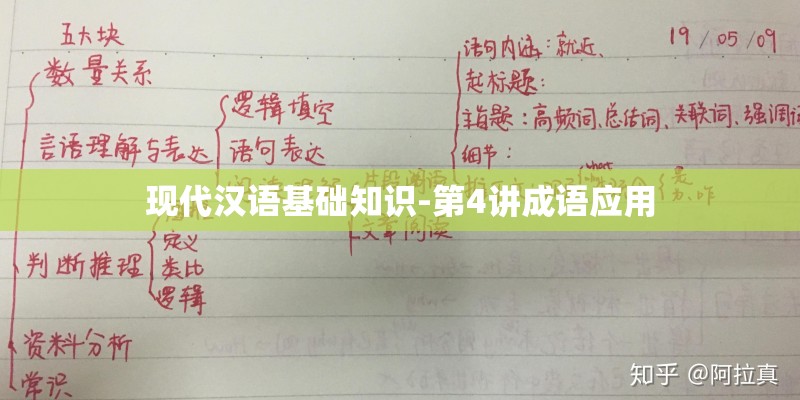 五大块
数量关系
言语理解与表达
逻辑填空
语句表达
片段阅读
文章阅读
语句内涵：就近、
起标题：
主旨题：高频词、总结词、关联词、强调
细节：
19/05/09
现代汉语基础知识-第4讲成语应用
判断推理
定义
类比
逻辑
资料分析
常识
知乎 @阿拉真